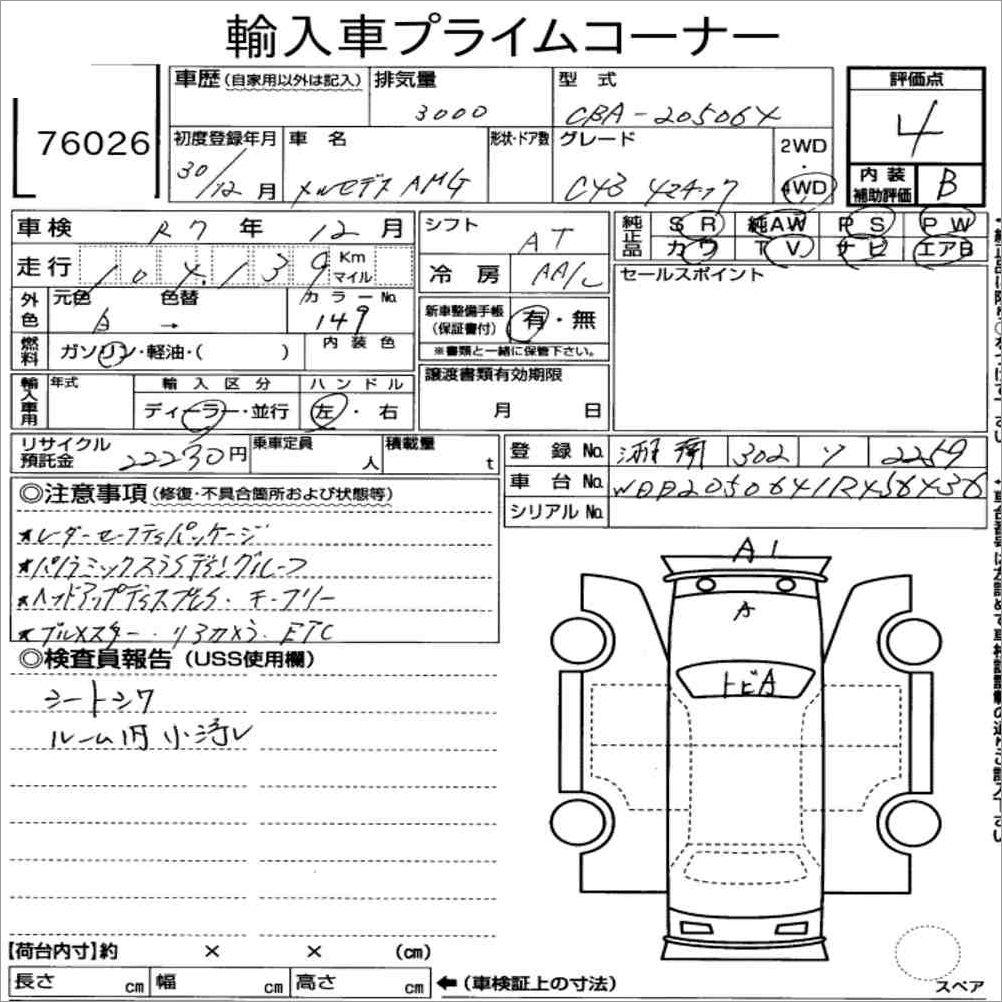 輸入車プライムコーナー
76026
車歴(自家用以外は記入) 排気量 3000 型式 CBA-205064 評価点 4
初度登録年月 30/12月 車名 メルセデス AMG 形状・ドア数 グレード C43 4マチック 2WD・4WD
内装補助評価 B
車検 R7年 12月 シフト AT 純正品 SR 純AW PS PW
カワ TV ナビ エアB
走行 104,139 Km マイル 冷房 AA/C セールスポイント
外色 元色 白 色替 → カラーNo. 149 新車整備手帳(保証書付) 有・無
※書類と一緒に保管下さい。
燃料 ガソリン・軽油・( ) 内装色
輸入車用 年式 輸入区分 ディーラー・並行 ハンドル 左・右 譲渡書類有効期限 月 日
リサイクル預託金 22230円 乗車定員 人 積載量 t 登録No. 302 ソ 2259
車台No. WDD2050641R456436
シリアルNo.
◎注意事項(修復・不具合箇所および状態等)
★レーダーセーフティパッケージ
★パノラミックスライディングルーフ
★ヘッドアップディスプレイ・キーフリー
★ブルメスター・リヤカメラ・ETC
◎検査員報告(USS使用欄)
シートシワ
ルーム内 小汚レ
A1
A
トビA
【荷台内寸】約 × × (cm)
長さ cm 幅 cm 高さ cm ←(車検証上の寸法)
スペア